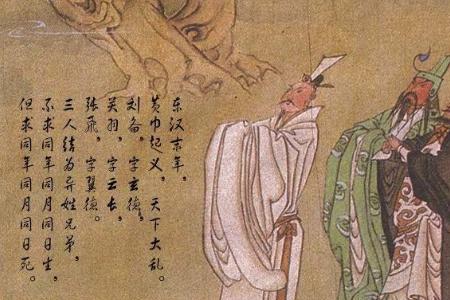 东汉末年，
黄巾起义，天下大乱。
刘备，字玄德，
关羽，字云长，
张飞，字翼德。
三人结为异姓兄弟，
不求同年同月同日生，
但求同年同月同日死。